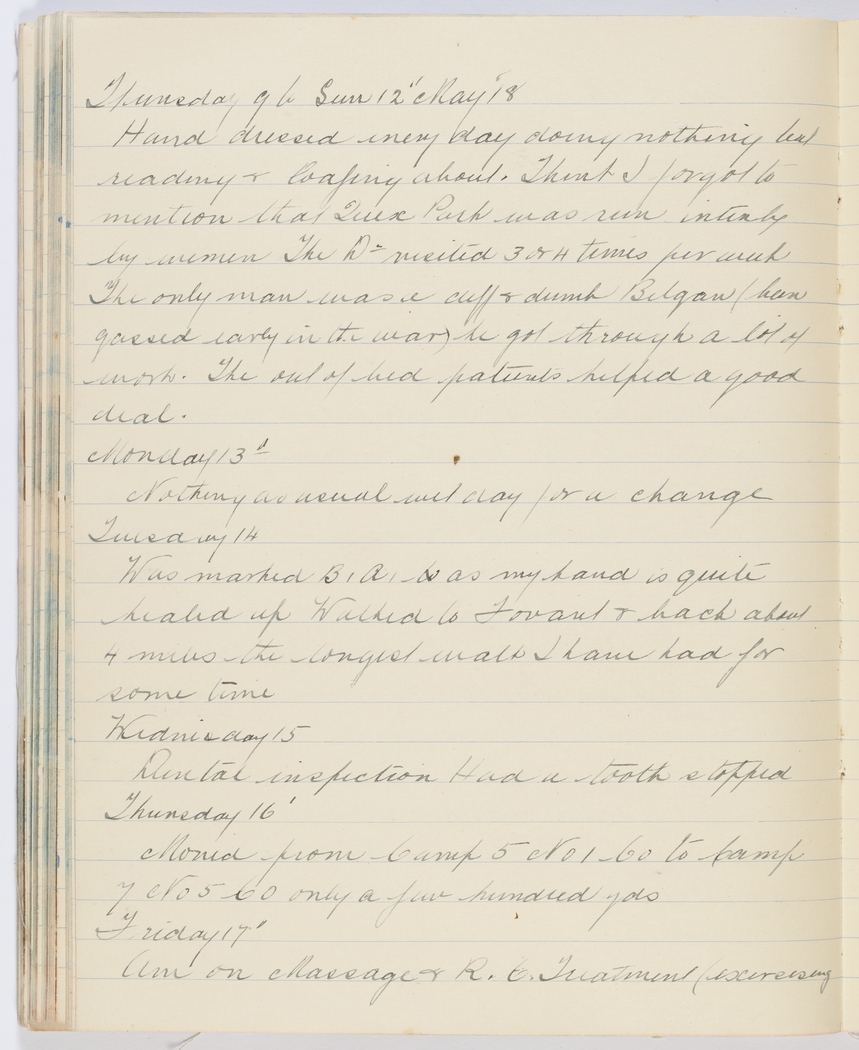 Thursday 9 to Sun 12" May "18
Hand dressed every day doing nothing but
reading & loafing about. Think I forgot to
mention that Quex Park was run intirly
by women The Dr visited 3 or 4 times per week
The only man was a deff & dumb Belgan (been
gassed early in the war) he got through a lot of
work. The out of bed patients helped a good
deal.
Monday 13"
Nothing as usual wet day for a change
Tuesday 14
Was marked B1A1 as my hand is quite
healed up Walked to Fovant & back about
4 miles the longest walk I have had for
some time
Wednesday 15
Dental inspection Had a tooth stopped
Thursday 16'
Moved from Camp 5 No 1 Co to Camp
7 No 5 Co only a few hundred yds
Friday 17"
Am on Massage & R. C. Treatment (excersising